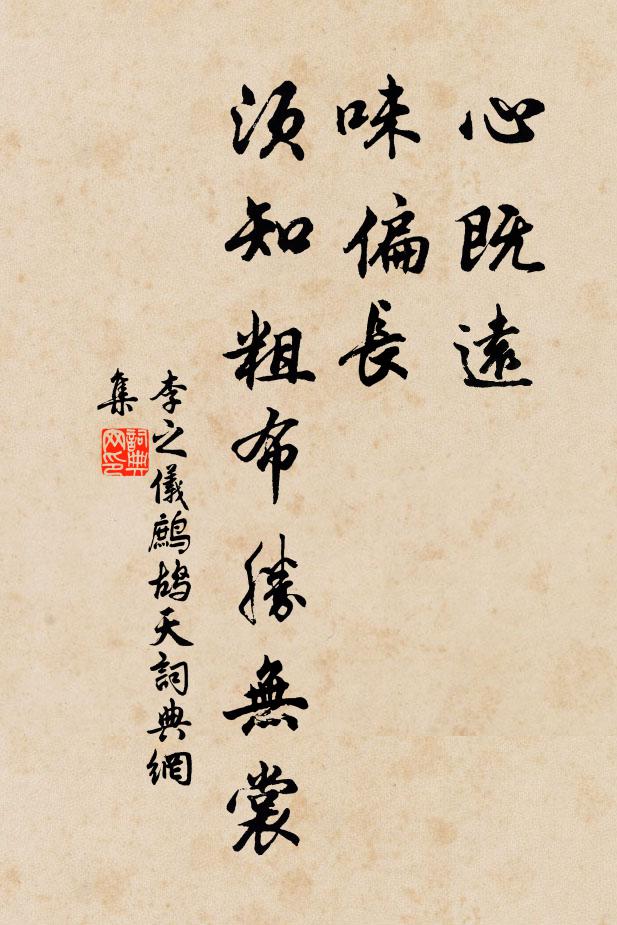 心既遠
味偏長
須知粗布勝無裳
李之儀鷓鴣天詞典網
集
詞典
网印